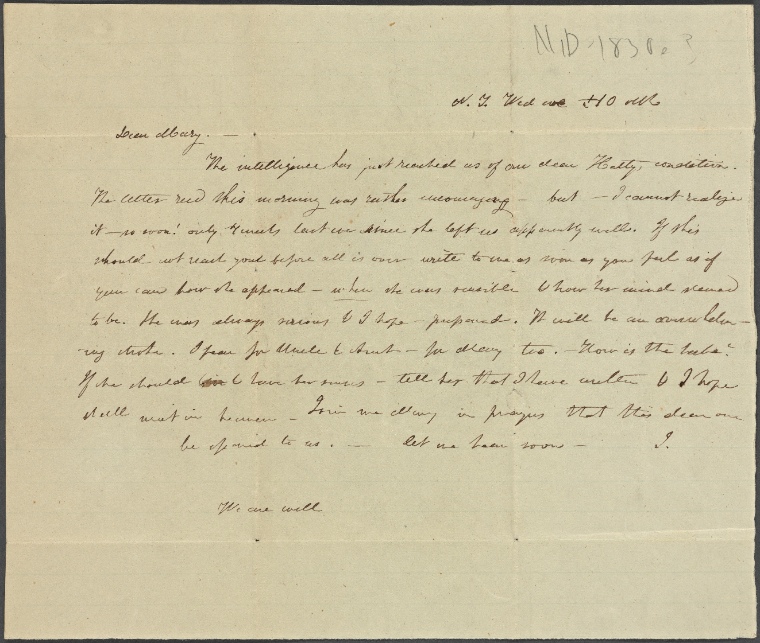 N.D. 1830.?
N.Y. Wed eve 10 oclk
Dear Mary. —
The intelligence has just reached us of our dear Hattys condition.
The letter recd this morning was rather encouraging — but — I cannot realize
it — so soon! only 4 weeks last eve since she left us apparently well. If this
should not reach you before all is over write to me as soon as you feel as if
you can how she appeared — when she was sensible & how her mind seemed
to be. She was always serious & I hope — prepared. It will be an overwhelm-
-ing stroke. I fear for Uncle & Aunt — for Mary too. — How is the babe?
If she should have her senses — tell her that I have written & I hope
shall meet in heaven — Join me Mary in prayers that this dear one
be spared to us. — let me hear soon — J.
We are well